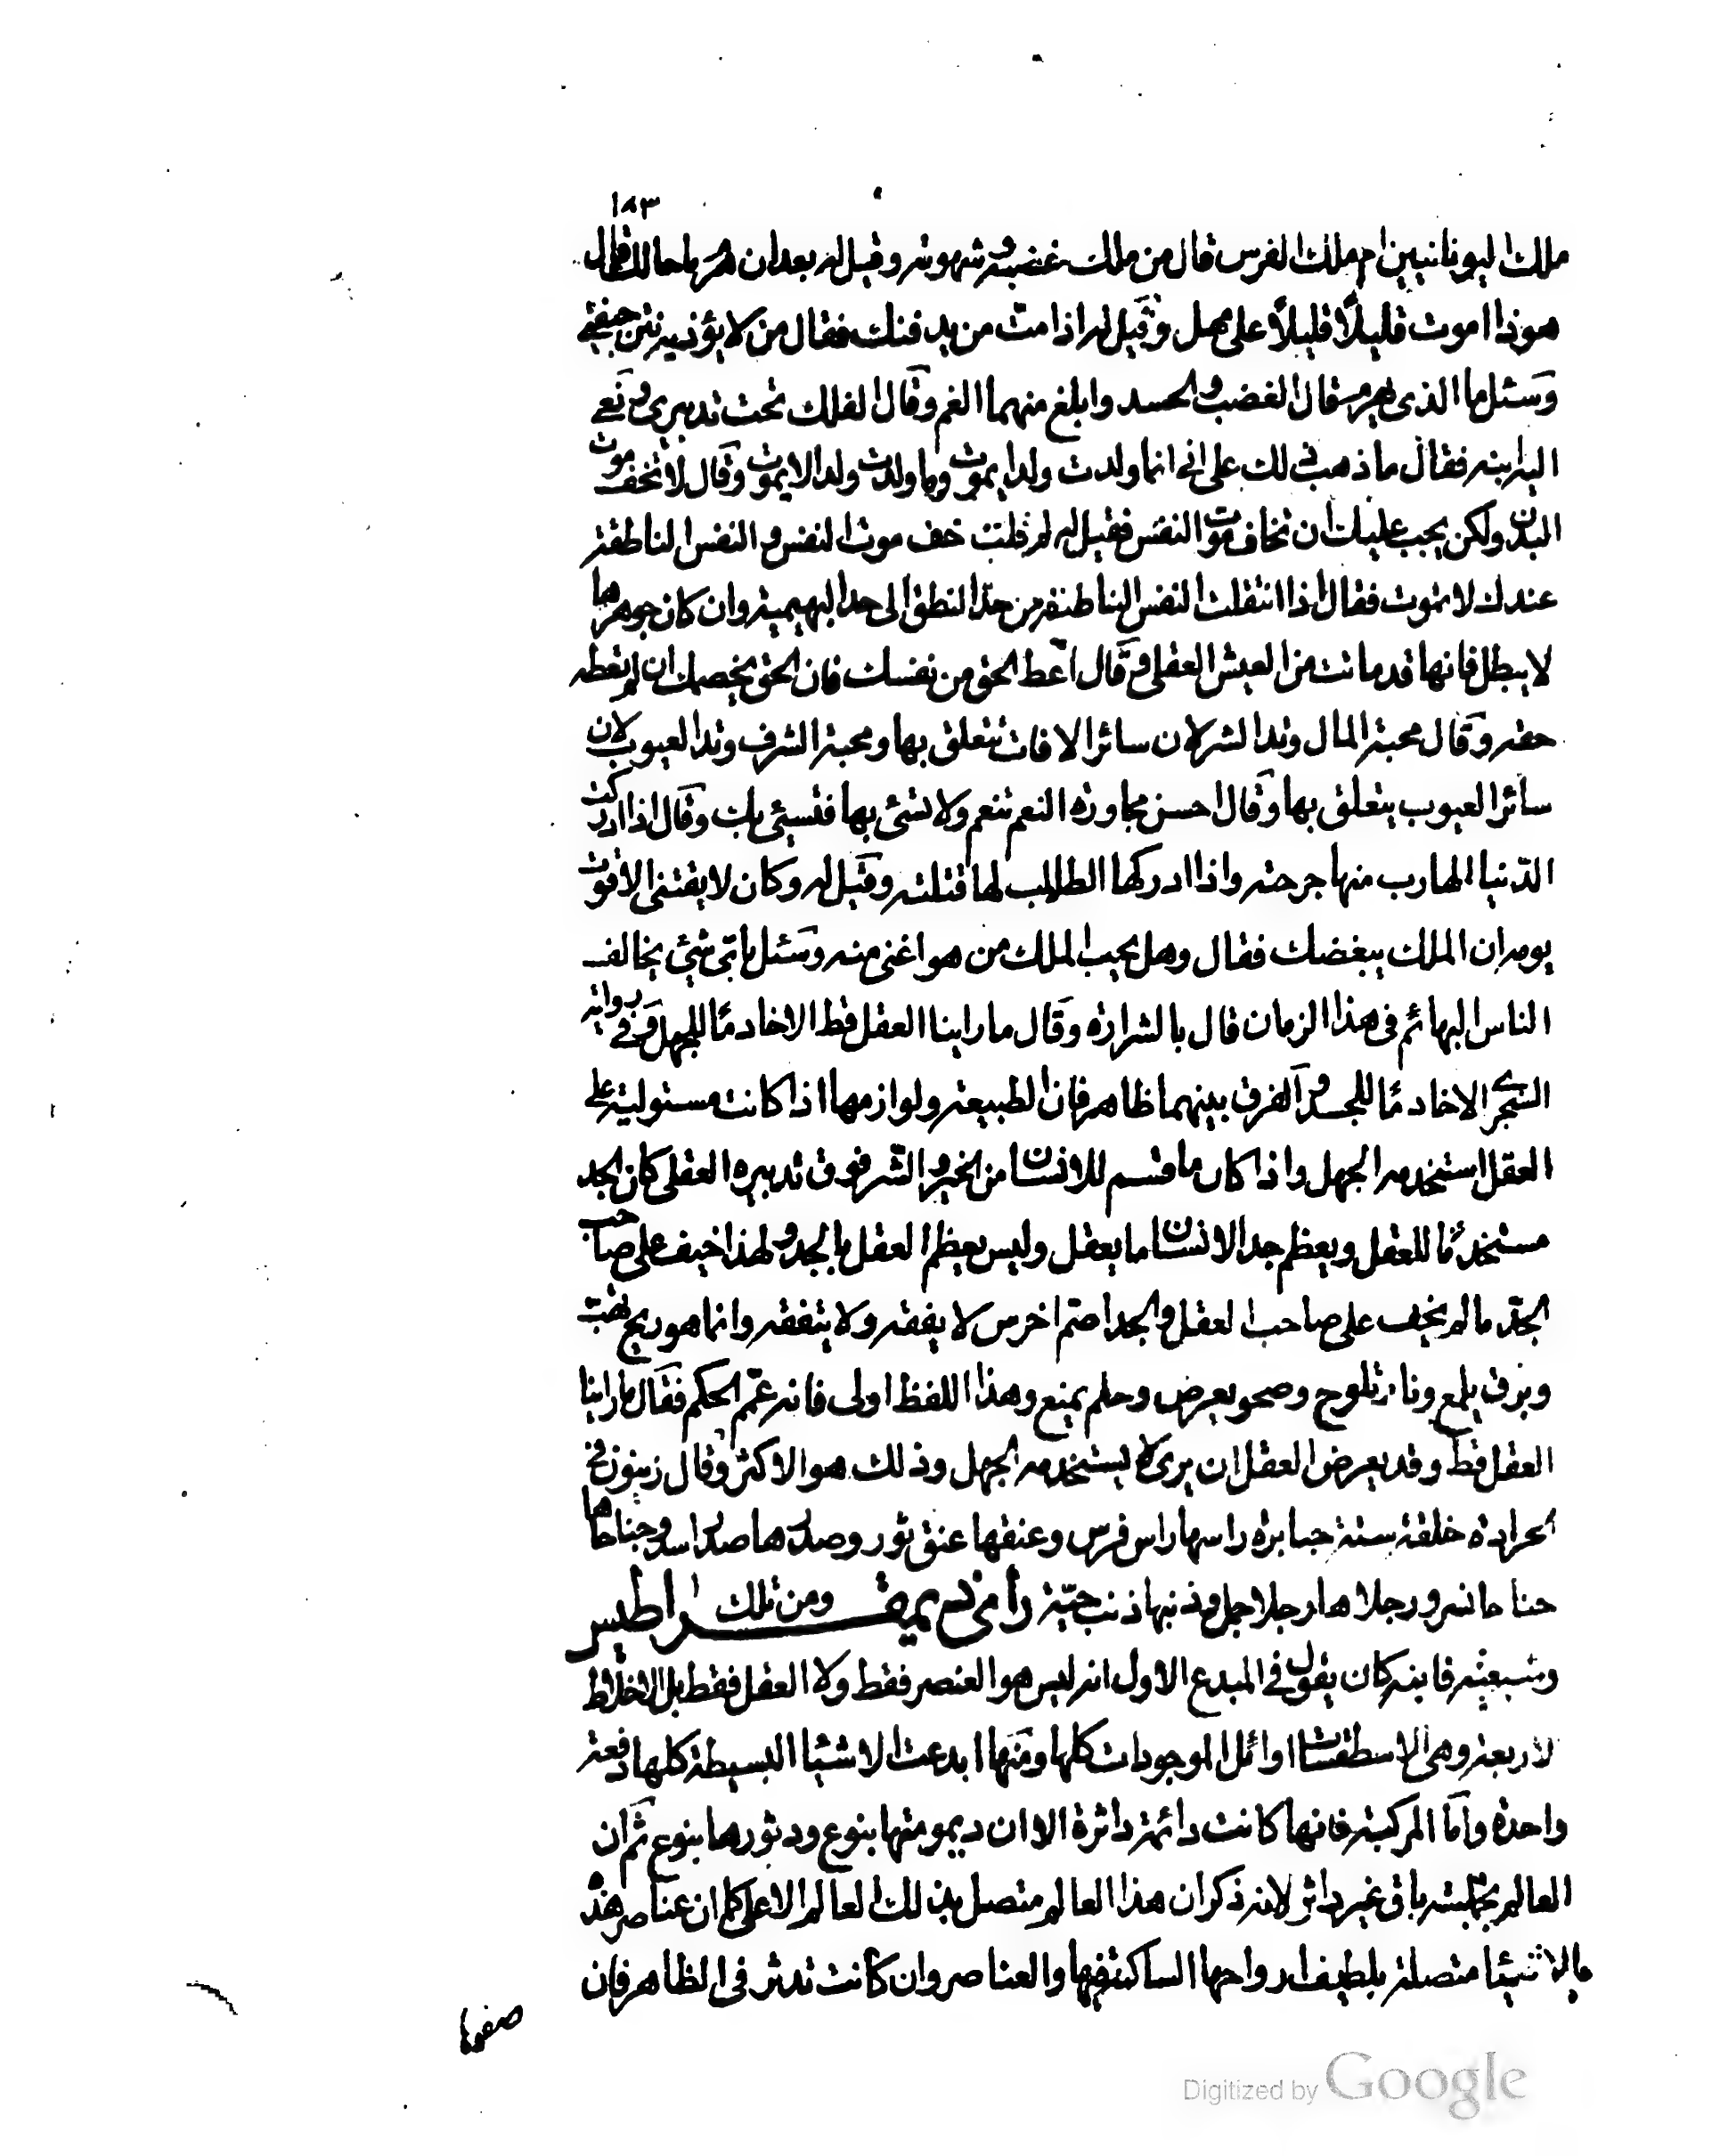 ١٨٣
ملك اليونانيين ام ملك الفرس قال من ملك غضبه وشهوته وقيل له بعد ان هرم ما حالك فقال
هوذا اموت قليلًا قليلًا على مهل وقيل له اذا مت من يدفنك فقال من لا يؤذيه نتن جيفتي
وسئل ما الذي يهرم قال الغضب والحسد وابلغ منهما الغم وقال الفلك تحت تدبيري ونعي
اليه ابنه فقال ما ذهب ذلك على اني انما ولدت ولدا يموت وما ولدت ولدا لا يموت وقال لا تخف موت
البدن ولكن يجب عليك ان تخاف موت النفس فقيل له لم قلت خف موت النفس والنفس الناطقة
عندك لا تموت فقال اذا انتقلت النفس الناطقة من حد النطق الى حد البهيمية وان كان جوهرها
لا يبطل فانها قد ماتت من العيش العقلي وقال اعط الحق من نفسك فان الحق يخصمك ان لم تعطه
حقه وقال محبة المال وتد الشر لان سائر الافات تتعلق بها ومحبة الشرف وتد العيوب لان
سائر العيوب يتعلق بها وقال احسن مجاورة النعم تنعم ولا تسئ بها فتسيئ بك وقال اذا ادركت
الدنيا الهارب منها جرحته واذا ادركها الطالب لها قتلته وقيل له وكان لا يقتنى الا قوت
يومه ان الملك يبغضك فقال وهل يحب الملك من هو اغنى منه وسئل باي شيئ يخالف
الناس البهائم في هذا الزمان قال بالشرارة وقال ما راينا العقل قط الا خادمًا للجهل وفي رواية
السجزي الا خادمًا للجد والفرق بينهما ظاهر فان الطبيعة ولوازمها اذا كانت مستولية على
العقل استخدمه الجهل واذا كان ما قسم للانسان من الخير والشر فوق تدبيره العقلي كان الجد
مستخدمًا للعقل ويعظم جد الانسان ما يعقل وليس يعظم العقل بالجد ولهذا خيف على صاحب
الجد ما لم يخف على صاحب العقل والجد اصم اخرس لا يفقه ولا يتفقه وانما هو ريح تهب
وبرق يلمع ونار تلوح وصحو يعرض وحلم يمنع وهذا اللفظ اولى فانه عمم الحكم فقال ما راينا
العقل قط وقد يعرض العقل ان يرى لا يستخدمه الجهل وذلك هو الاكثر وقال زينون في
الجرادة خلقة ستة جبابرة راسها راس فرس وعنقها عنق ثور وصدرها صدر اسد وجناحاها
جناحا نسر ورجلاها رجلا جمل وذنبها ذنب حية راى ديمقراطيس ومن تلك
وشيعته فانه كان يقول في المبدع الاول انه ليس هو العنصر فقط ولا العقل فقط بل الاخلاط
لاربعة وهي الاسطقسات اوائل الموجودات كلها ومنها ابدعت الاشيا البسيطة كلها دفعة
واحدة واما المركبة فانها كانت دائمة داثرة الا ان ديمومتها بنوع ودثورها بنوع ثم ان
العالم بجملته باق غير داثر لانه ذكر ان هذا العالم متصل بذلك العالم الاعلى كما ان عناصر هذه
الاشيئا متصلة بلطيف ارواحها الساكنة فيها والعناصر وان كانت تدثر في الظاهر فان
صفوها
Digitized by Google